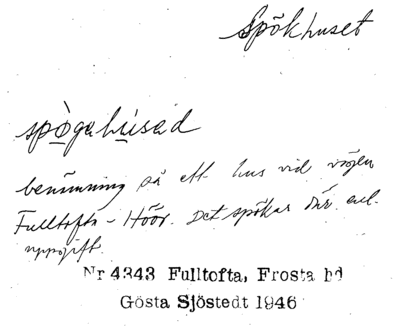 Spökhuset
spò̱gahu̱sad
benämning på ett hus vid vägen
Fulltofta - Höör. Det spökar där enl.
uppgift.
Nr 4343 Fulltofta, Frosta hd
Gösta Sjöstedt 1946